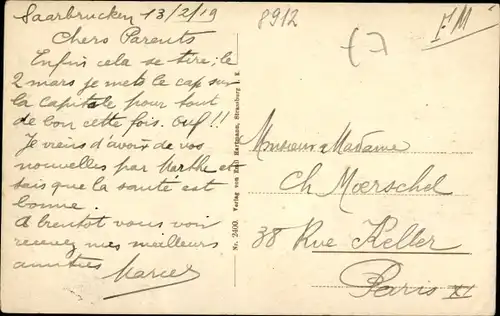 Saarbrucken 13/2/19
Chers Parents
Enfin cela se tire; le
2 mars je mets le cap sur
la capitale pour tout
de bon cette fois. Ouf!!
Je viens d'avoir de vos
nouvelles par Marthe et
sais que la santé est
bonne.
A bientot vous voir
recevez mes meilleurs
amitiés Marcel
8912
FM
Nr. 2400. Verlag von Emil Hartmann, Strassburg i. E.
Monsieur & Madame
Ch Moerschel
38 Rue Keller
Paris XI